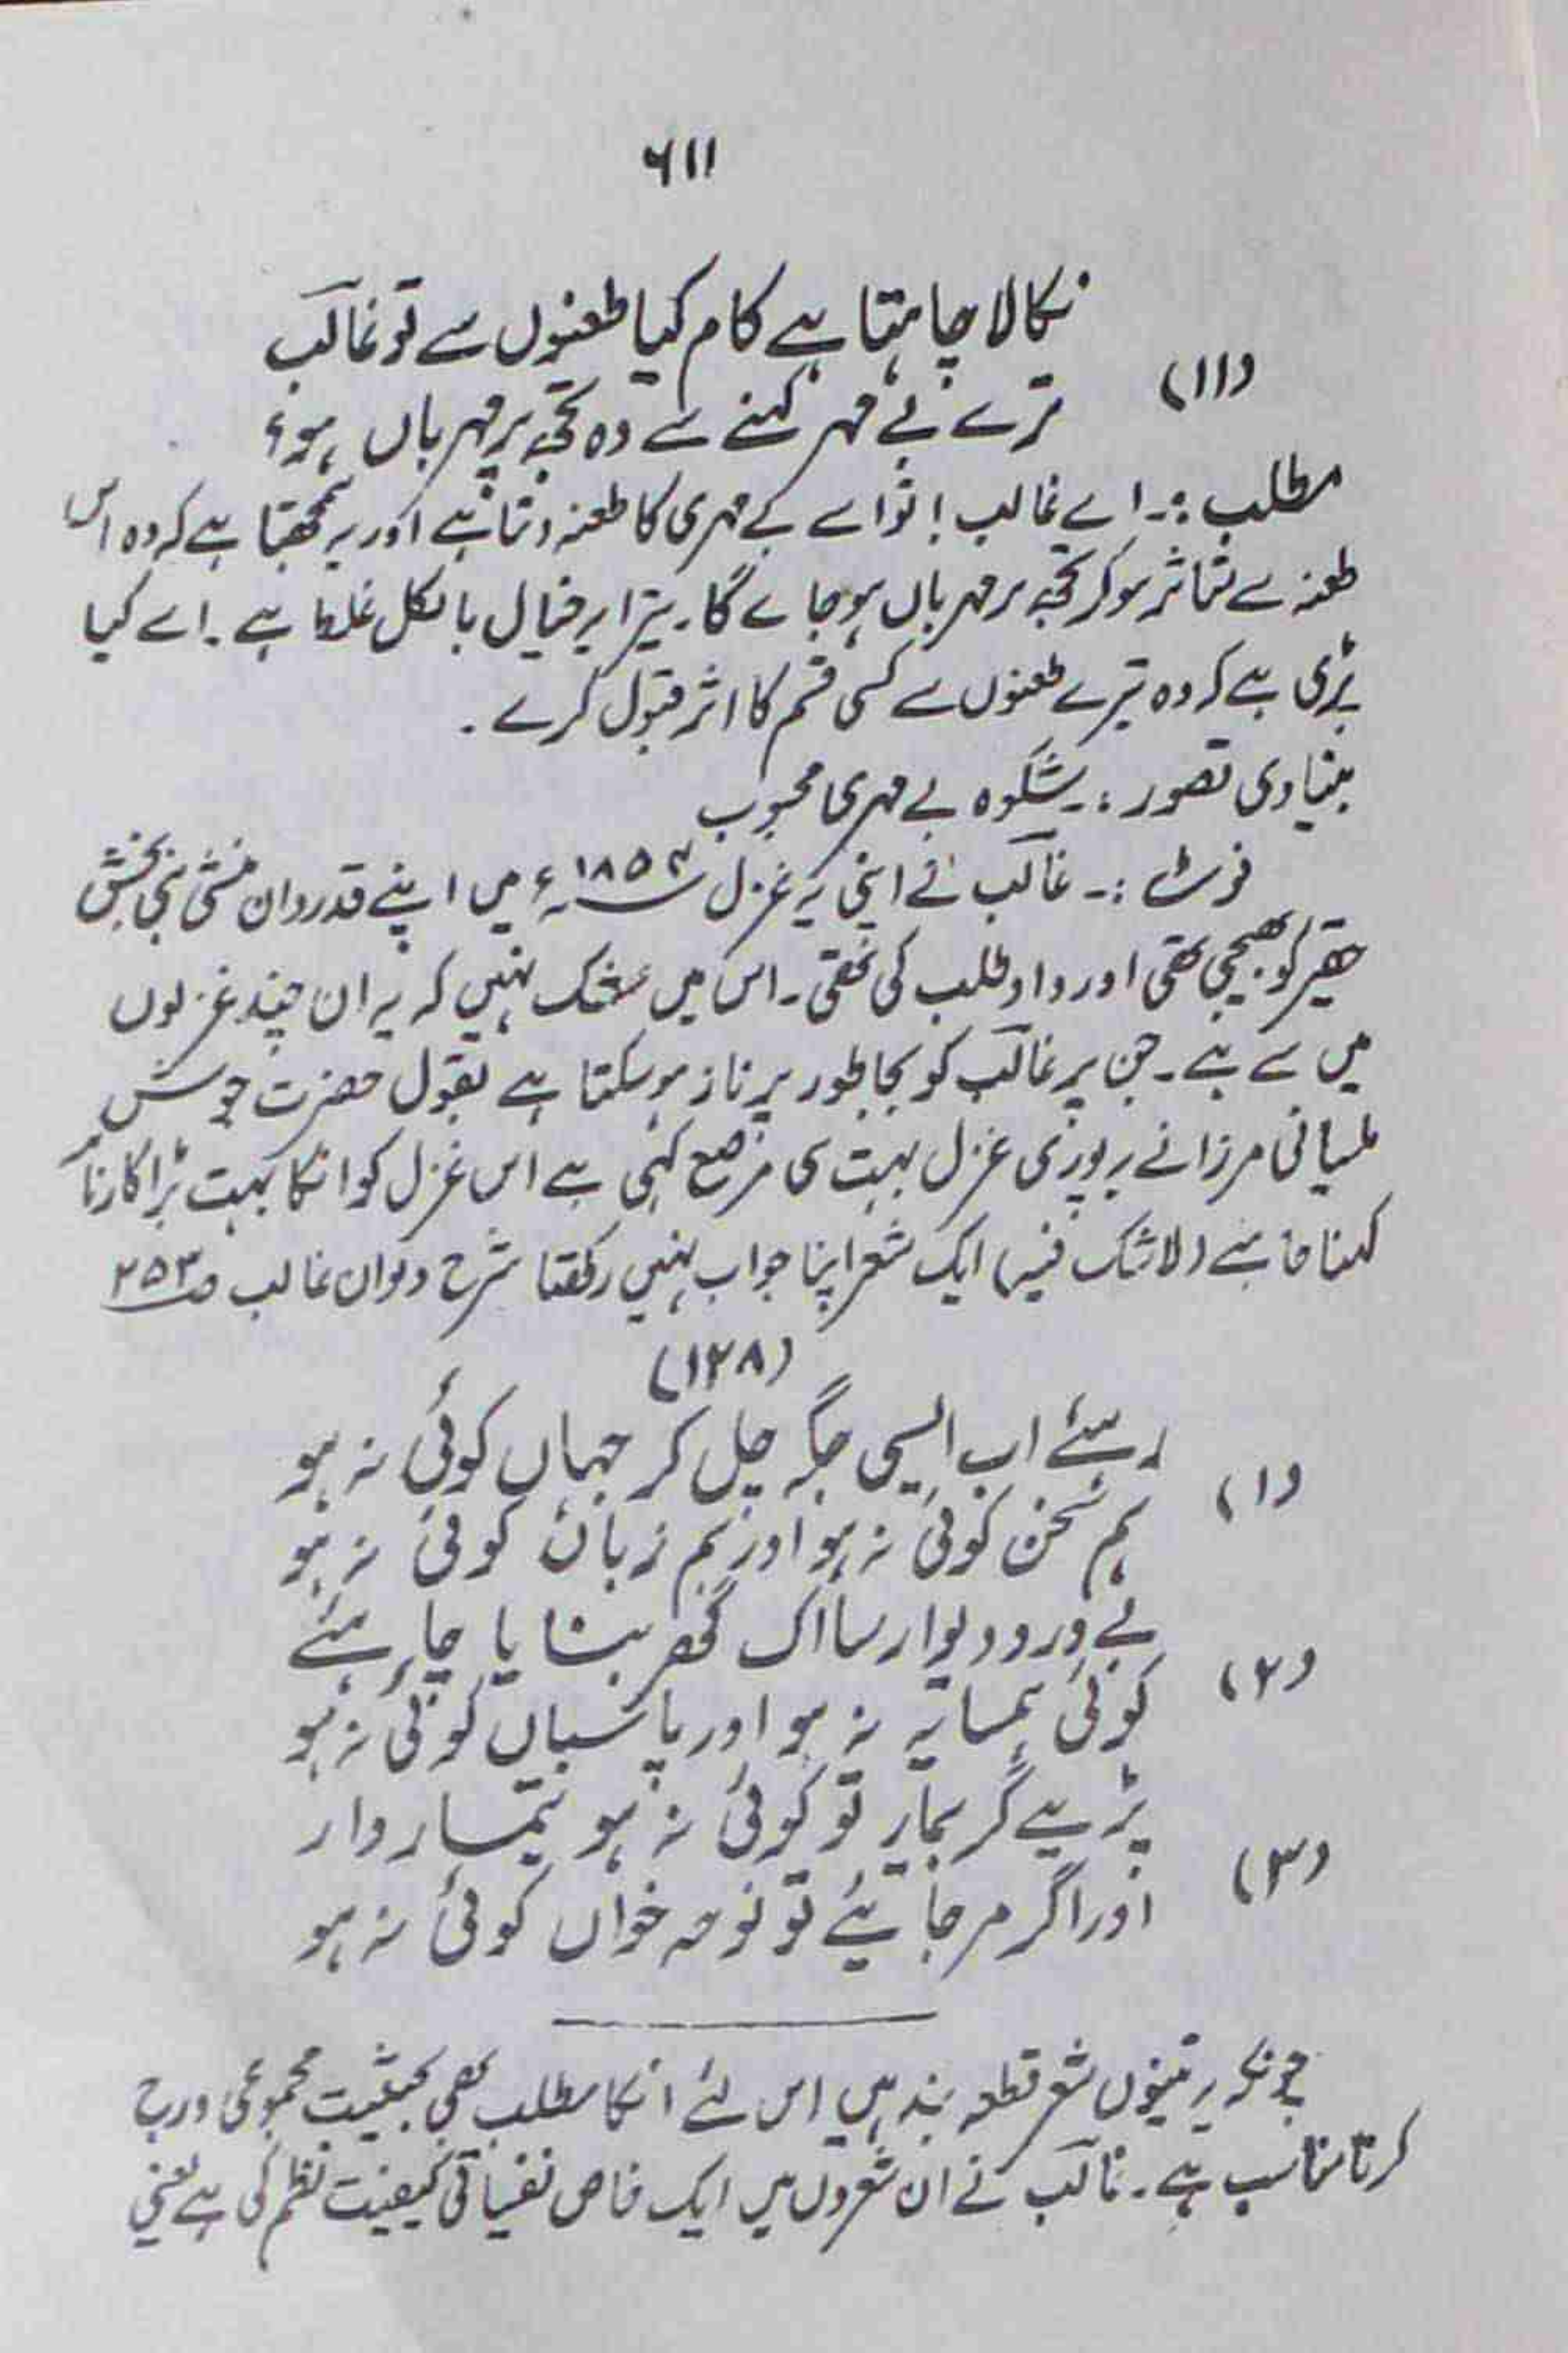 ۶۱۱
نکالا چاہتا ہے کام کیا طعنوں سے تو غالب
(۱۱)
ترے بے مہر کہنے سے وہ تجھ پر مہرباں ہو؟
مطلب :۔ اے غالب! تو اسے بے مہری کا طعنہ دیتا ہے اور یہ سمجھتا ہے کہ وہ اس
طعنہ سے متاثر ہو کر تجھ پر مہرباں ہو جائے گا۔ تیرا یہ خیال بالکل غلط ہے۔ اسے کیا
پڑی ہے کہ وہ تیرے طعنوں سے کسی قسم کا اثر قبول کرے۔
بنیادی تصور :۔ شکوہ بے مہری محبوب
نوٹ :۔ غالب نے اپنی یہ غزل ۱۸۵۳ء میں اپنے قدردان منشی نبی بخش
حقیر کو بھیجی تھی اور داد طلب کی تھی۔ اس میں شک نہیں کہ یہ ان چند غزلوں
میں سے ہے۔ جن پر غالب کو بجا طور پر ناز ہو سکتا ہے بقول حضرت جوش
ملسیانی مرزا نے یہ پوری غزل بہت ہی مرصع کہی ہے اس غزل کو انکا بہت بڑا کارنامہ
کہنا چاہئے (لاشک فیہ) ایک شعر اپنا جواب نہیں رکھتا شرح دیوان غالب ص۲۵۳
(۱۲۸)
رہئے اب ایسی جگہ چل کر جہاں کوئی نہ ہو
(۱)
ہم سخن کوئی نہ ہو اور ہم زباں کوئی نہ ہو
بے در و دیوار سا اک گھر بنایا چاہئے
(۲)
کوئی ہمسایہ نہ ہو اور پاسباں کوئی نہ ہو
پڑیے گر بیمار تو کوئی نہ ہو تیمار دار
(۳)
اور اگر مر جائیے تو نوحہ خواں کوئی نہ ہو
چونکہ یہ تینوں شعر قطعہ بند ہیں اس لئے انکا مطلب بھی بحیثیت مجموعی درج
کرنا مناسب ہے۔ غالب نے ان شعروں میں ایک خاص نفسیاتی کیفیت نظم کی ہے یعنی